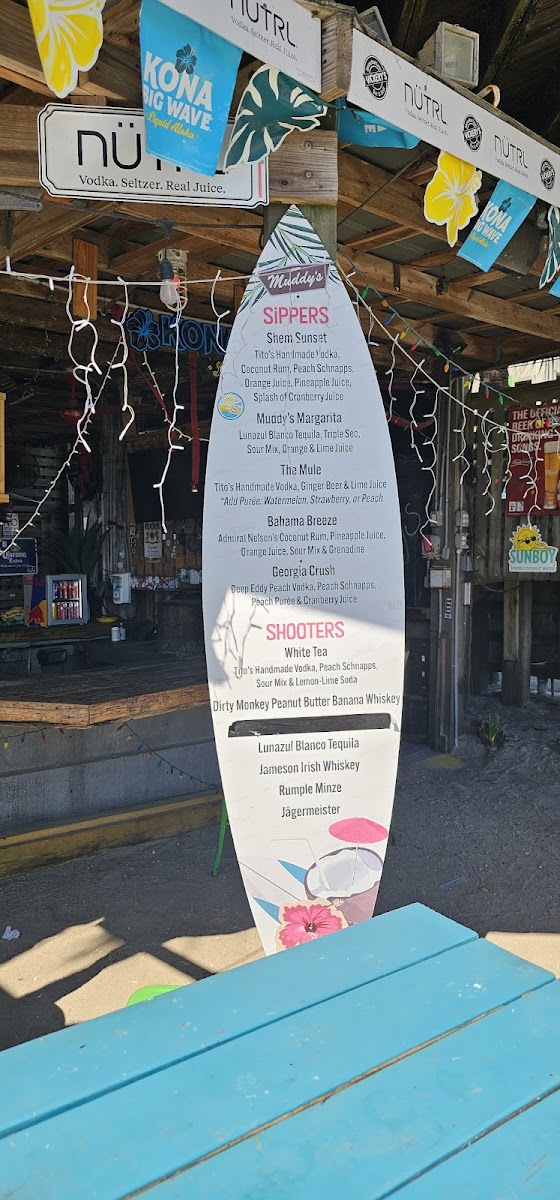 nÜTRL
Vodka. Seltzer. Real Juice.
KONA
BIG WAVE
Liquid Aloha
nÜ
Vodka. Seltzer. Real Juice.
NÜTRL
Vodka. Seltzer. Real Juice.
NÜTRL
Vodka. Seltzer. Real Juice.
KONA
BIG WAVE
Liquid Aloha
KONA
Muddy's
SiPPERS
Shem Sunset
Tito's Handmade Vodka,
Coconut Rum, Peach Schnapps,
Orange Juice, Pineapple Juice,
Splash of Cranberry Juice
Muddy's Margarita
Lunazul Blanco Tequila, Triple Sec,
Sour Mix, Orange & Lime Juice
The Mule
Tito's Handmade Vodka, Ginger Beer & Lime Juice
*Add Purée: Watermelon, Strawberry, or Peach
Bahama Breeze
Admiral Nelson's Coconut Rum, Pineapple Juice,
Orange Juice, Sour Mix & Grenadine
Georgia Crush
Deep Eddy Peach Vodka, Peach Schnapps,
Peach Purée & Cranberry Juice
SHOOTERS
White Tea
Tito's Handmade Vodka, Peach Schnapps,
Sour Mix & Lemon-Lime Soda
Dirty Monkey Peanut Butter Banana Whiskey
Lunazul Blanco Tequila
Jameson Irish Whiskey
Rumple Minze
Jägermeister
THE OFFICIAL
BEER OF
DRINKING
SONGS
SUNBOY
Corona
Extra